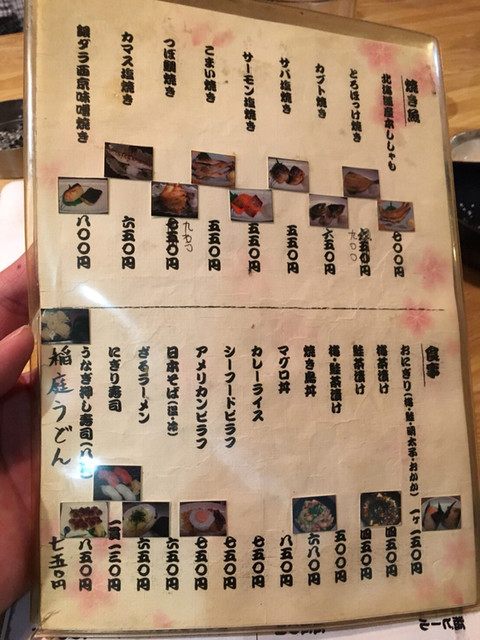 焼き魚
北海道産本ししゃも 七〇〇円
とろほっけ焼き 九五〇円 九〇〇
カブト焼き 六五〇円
サバ塩焼き 五五〇円
サーモン塩焼き 五五〇円
こまい焼き 五五〇円
つぼ鯛焼き 七五〇円 九五〇
カマス塩焼き 六五〇円
銀ダラ西京味噌焼き 八〇〇円
食事
おにぎり(梅・鮭・明太子・おかか) 一ヶ 一五〇円
梅茶漬け 四五〇円
鮭茶漬け 四五〇円
梅・鮭茶漬け 五〇〇円
焼き鳥丼 六八〇円
マグロ丼 八五〇円
カレーライス 七五〇円
シーフードピラフ 七五〇円
アメリカンピラフ 七五〇円
日本そば(温・冷) 六五〇円
ざるラーメン 六五〇円
にぎり寿司 一貫一三〇円
うなぎ押し寿司(八ヶ) 八五〇円
稲庭うどん 七五〇円